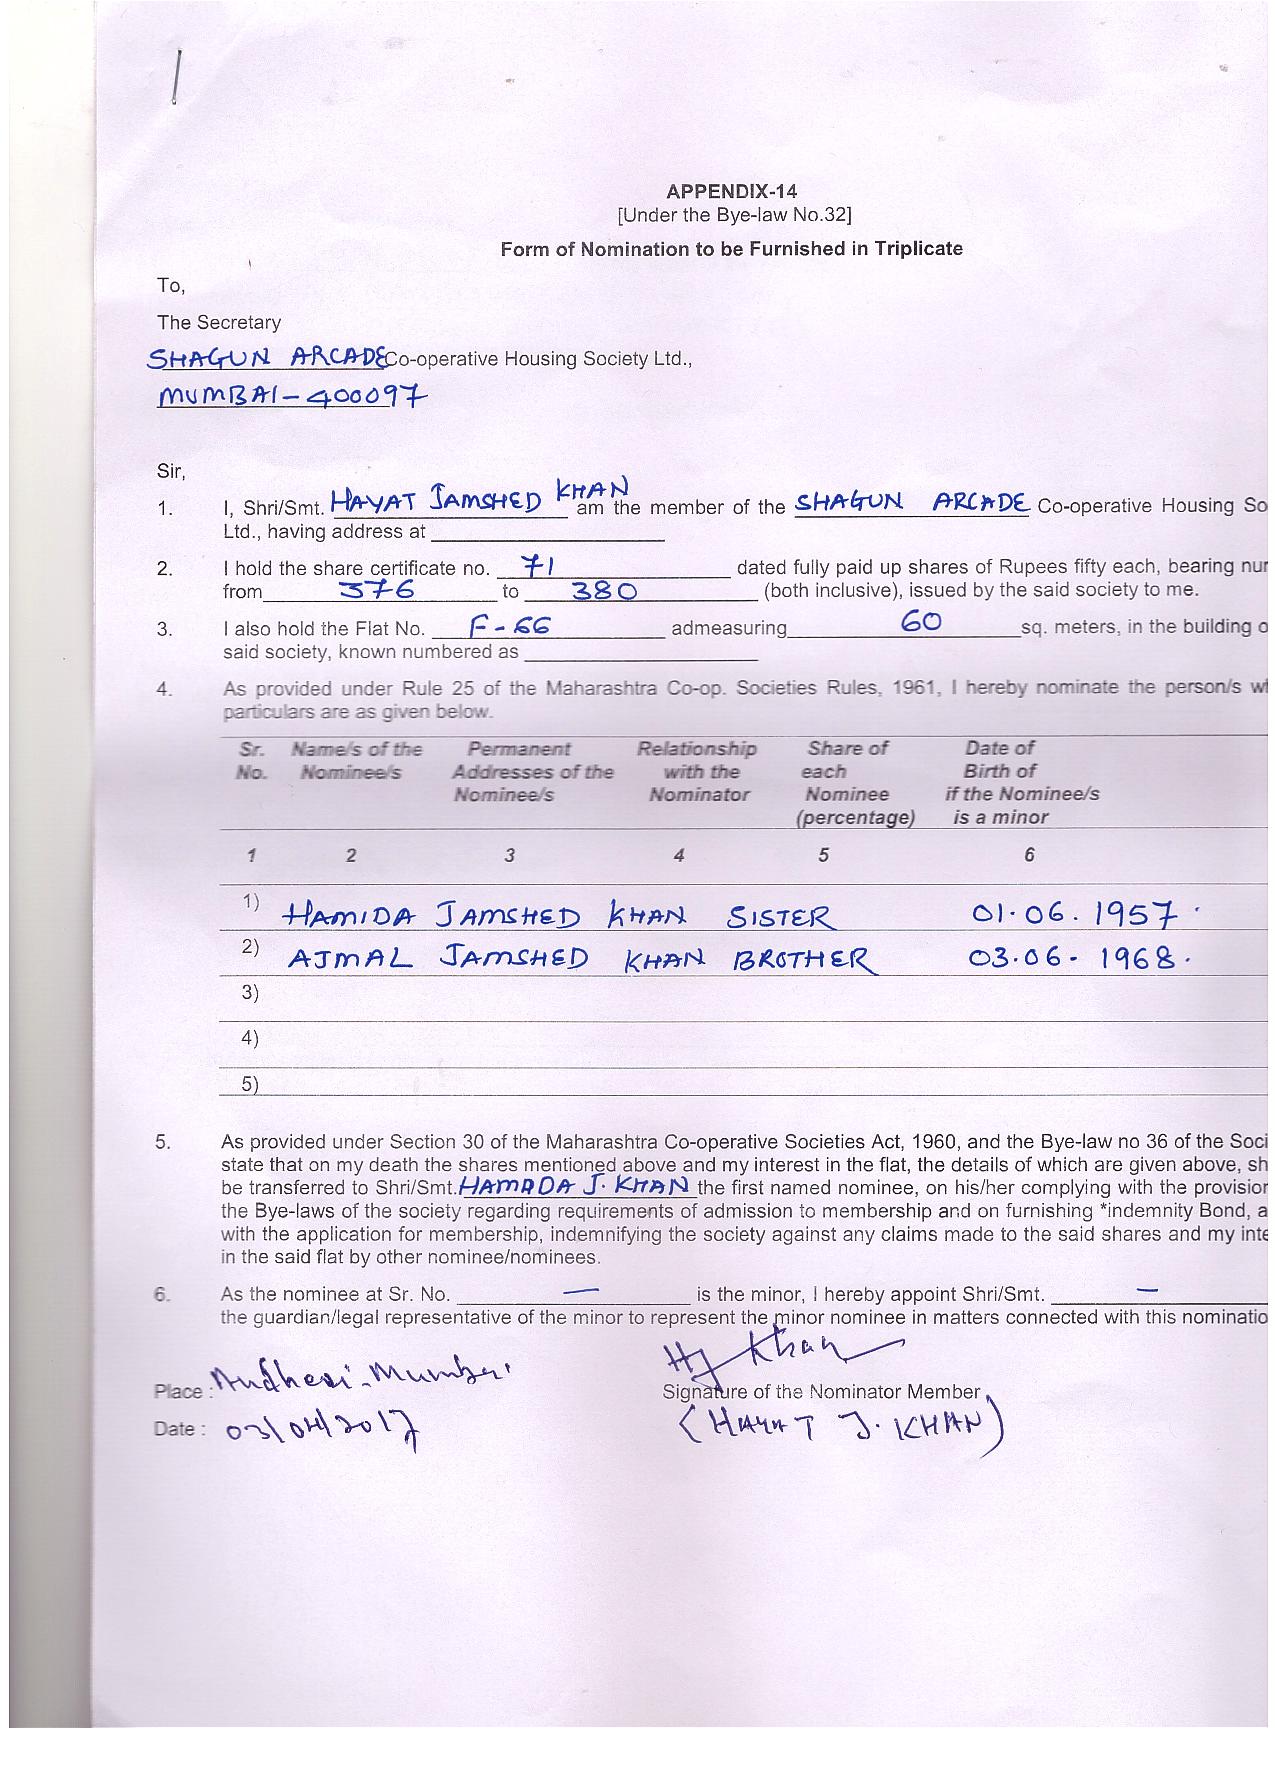 APPENDIX-14
[Under the Bye-law No.32]
Form of Nomination to be Furnished in Triplicate
To,
The Secretary
SHAGUN ARCADE Co-operative Housing Society Ltd.,
MUMBAI - 400097
Sir,
1. I, Shri/Smt. HAYAT JAMSHED KHAN am the member of the SHAGUN ARCADE Co-operative Housing So
Ltd., having address at
2. I hold the share certificate no. 71 dated fully paid up shares of Rupees fifty each, bearing nur
from 376 to 380 (both inclusive), issued by the said society to me.
3. I also hold the Flat No. F-66 admeasuring 60 sq. meters, in the building o
said society, known numbered as
4. As provided under Rule 25 of the Maharashtra Co-op. Societies Rules, 1961, I hereby nominate the person/s wh
particulars are as given below.
Sr. Name/s of the Permanent Relationship Share of Date of
No. Nominee/s Addresses of the with the each Birth of
Nominee/s Nominator Nominee if the Nominee/s
(percentage) is a minor
1 2 3 4 5 6
1) HAMIDA JAMSHED KHAN SISTER 01.06.1957.
2) AJMAL JAMSHED KHAN BROTHER 03.06-1968.
3)
4)
5)
5. As provided under Section 30 of the Maharashtra Co-operative Societies Act, 1960, and the Bye-law no 36 of the Soci
state that on my death the shares mentioned above and my interest in the flat, the details of which are given above, sh
be transferred to Shri/Smt. HAMDDA J. KHAN the first named nominee, on his/her complying with the provision
the Bye-laws of the society regarding requirements of admission to membership and on furnishing *indemnity Bond, a
with the application for membership, indemnifying the society against any claims made to the said shares and my inte
in the said flat by other nominee/nominees.
6. As the nominee at Sr. No. — is the minor, I hereby appoint Shri/Smt. —
the guardian/legal representative of the minor to represent the minor nominee in matters connected with this nominatio
HJ Khan
Place : Andheri - Mumbai
Signature of the Nominator Member
Date : 03/04/2017
(HAYAT J. KHAN)